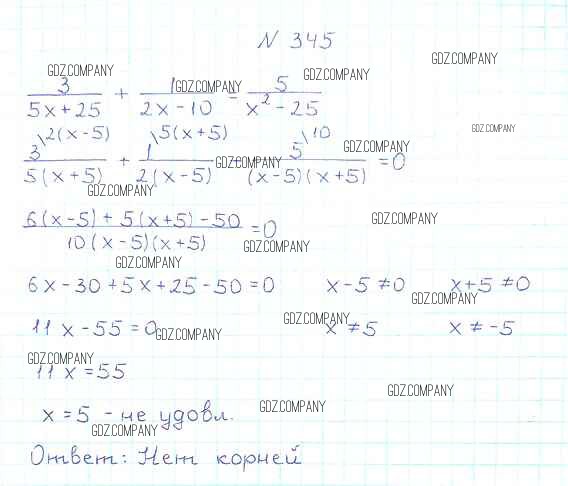 N 345
GDZ.COMPANY GDZ.COMPANY
3/(5x+25) + 1/(2x-10) = 5/(x²-25)
GDZ.COMPANY GDZ.COMPANY
3\2(x-5)/(5(x+5)) + 1\5(x+5)/(2(x-5)) - 5\10/((x-5)(x+5)) = 0
GDZ.COMPANY GDZ.COMPANY GDZ.COMPANY
GDZ.COMPANY
(6(x-5)+5(x+5)-50)/(10(x-5)(x+5)) = 0
GDZ.COMPANY GDZ.COMPANY
GDZ.COMPANY
6x-30+5x+25-50=0 x-5≠0 x+5≠0
GDZ.COMPANY
11x-55=0 x≠5 x≠-5
GDZ.COMPANY GDZ.COMPANY
GDZ.COMPANY
11x=55
GDZ.COMPANY
x=5 - не удовл.
GDZ.COMPANY
GDZ.COMPANY
Ответ: Нет корней